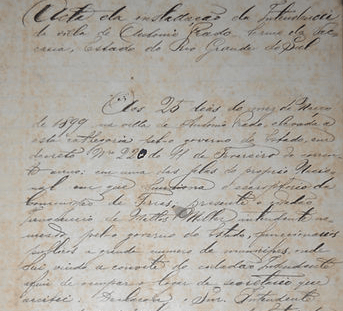 Acta da installação da Intendencia
da villa de Antonio Prado, termo da Vac
caria, Estado do Rio Grande do Sul
Aos 25 dias do mez de Março
de 1899 na villa de Antonio Prado, elevada a
esta cathegoria pelo governo do Estado, em
decreto Nº 220 de 11 de Fevereiro do corren
te anno, em uma das salas do proprio Nacio
nal em que funciona o escriptorio da
Commissão de Terras, presente o cidadão
Innocencio de Mattos Miller, intendente no
meado pelo governo do Estado, funccionarios
publicos e grande numero de municipes, onde
vindo a convite do cidadão Intendente
afim de comparecer logar de secretario que
acceitei. Declarou o Snr. Intendente